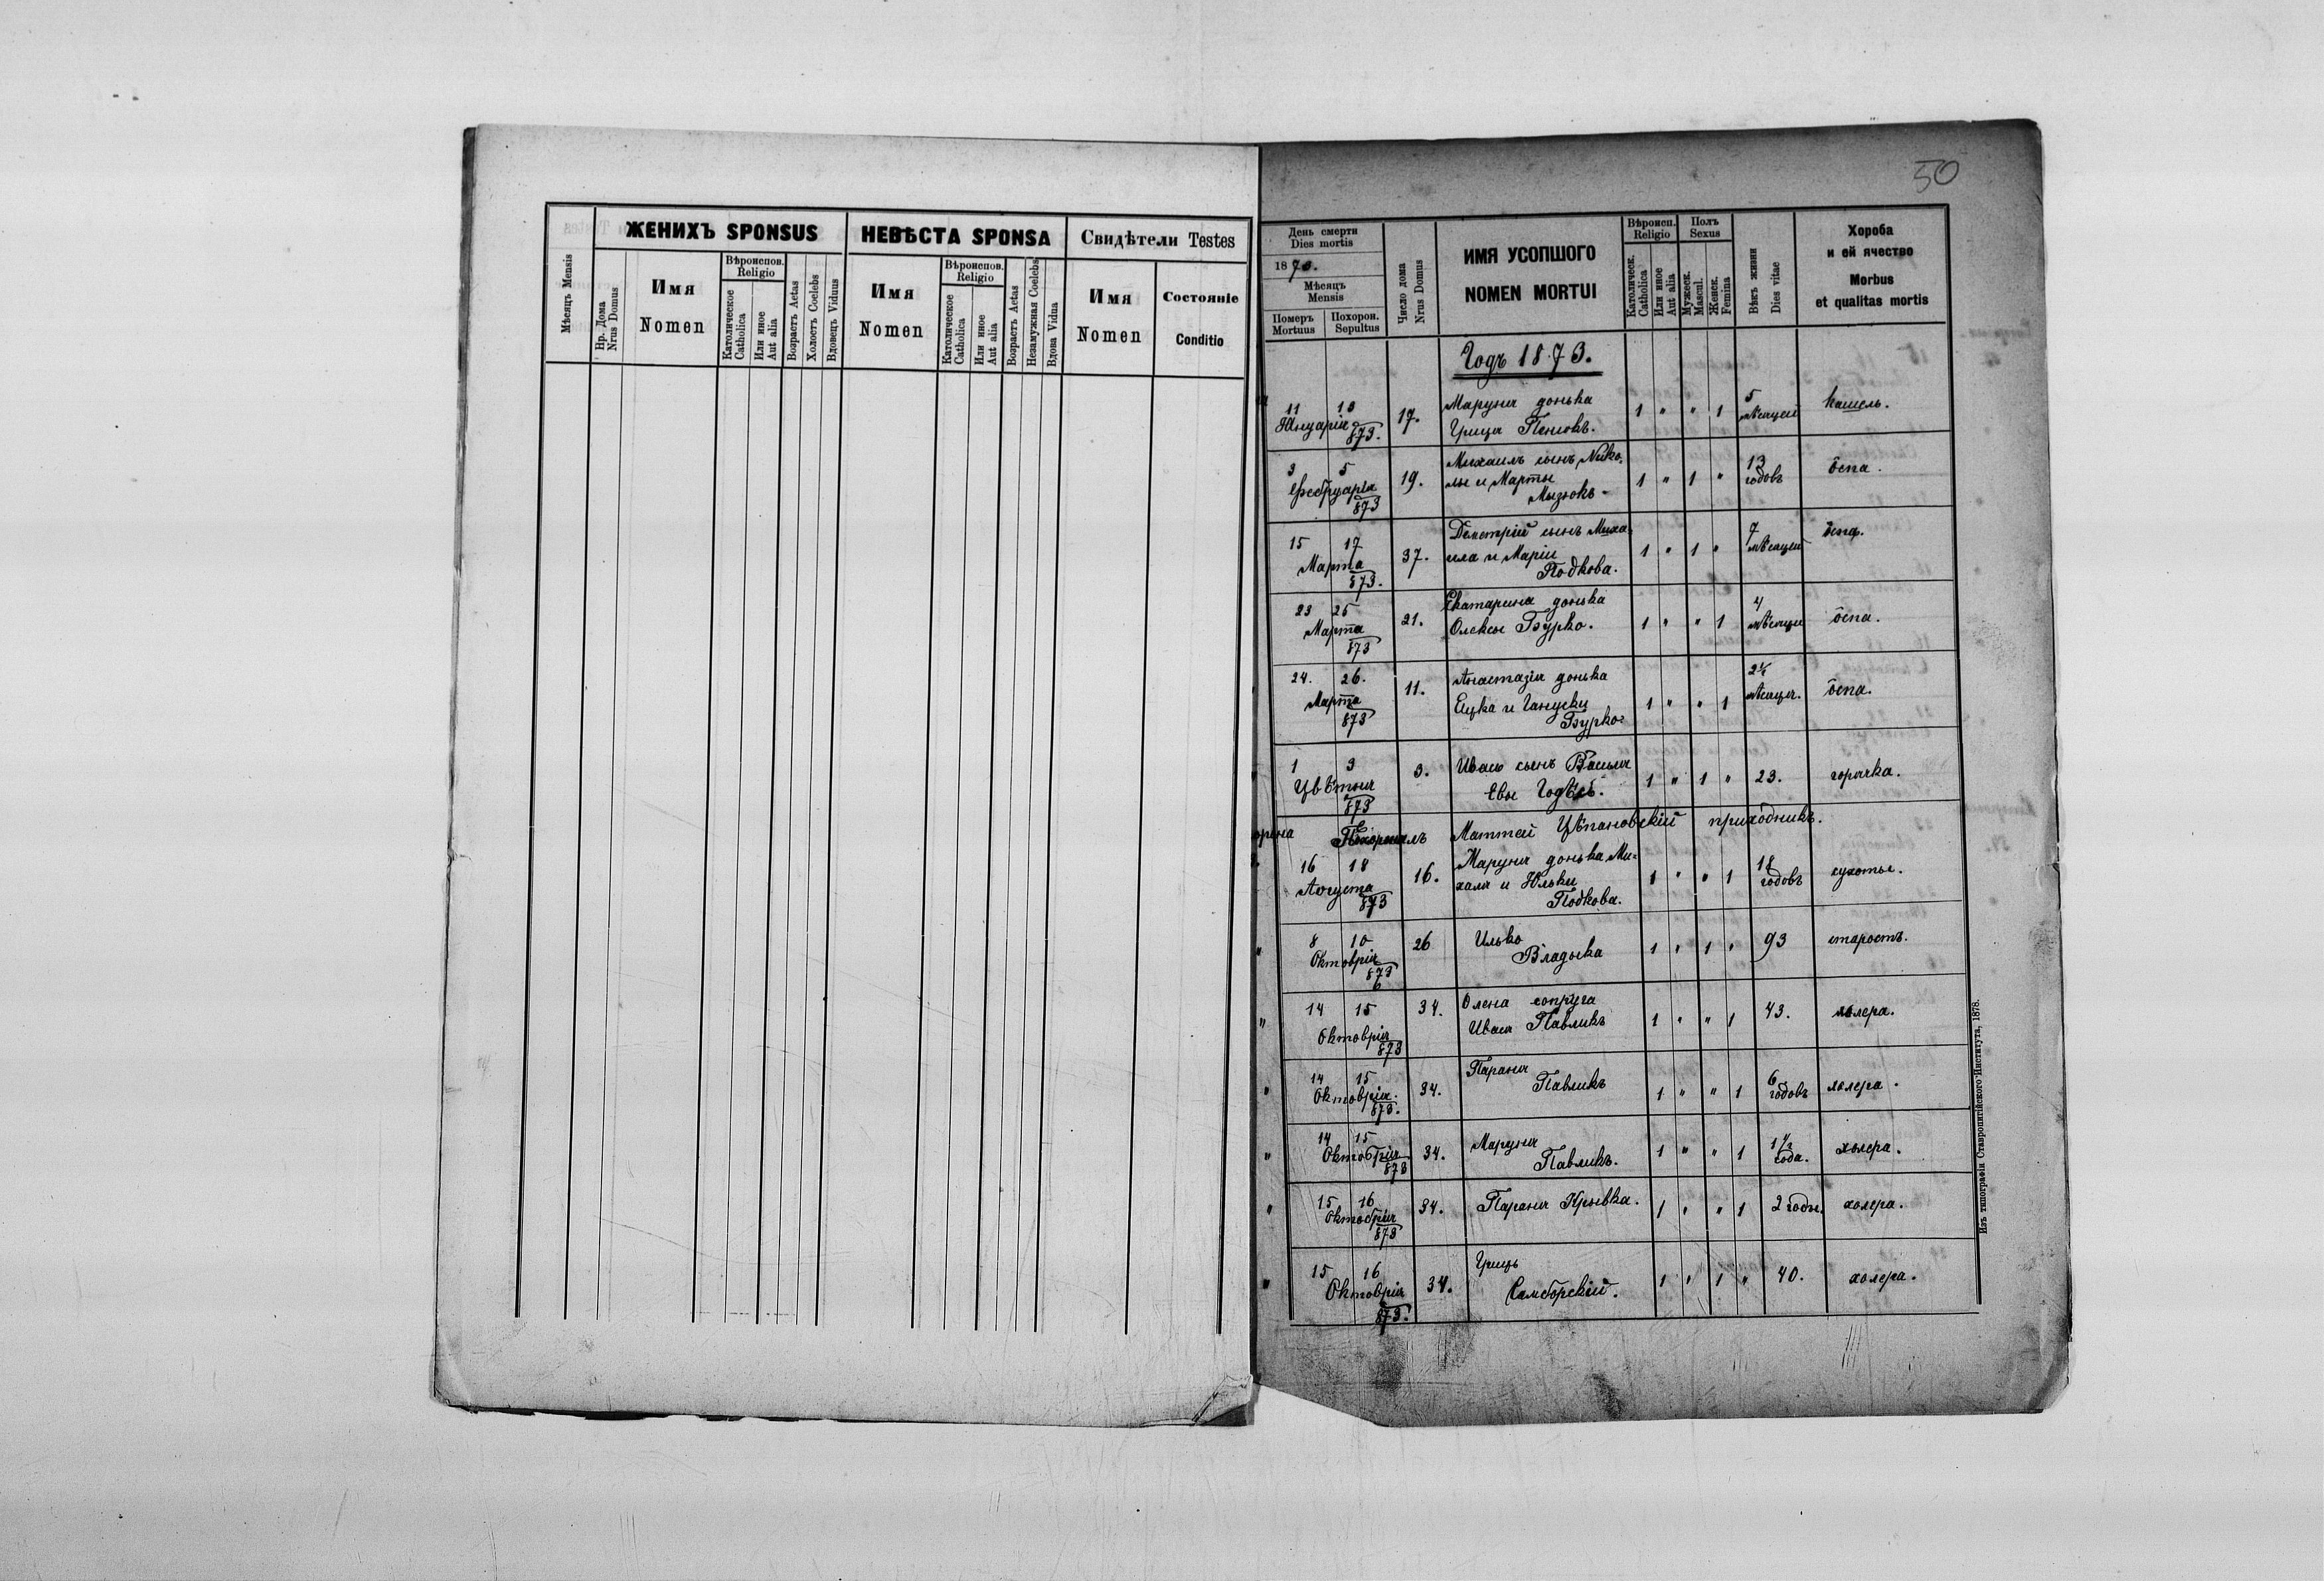 50
ЖЕНИХЪ SPONSUS
НЕВѢСТА SPONSA
Свидѣтели Testes
Мѣсяцъ Mensis
Нр. Дома
Nrus Domus
Имя
Nomen
Вѣроиспов.
Religio
Католическое
Catholica
Или иное
Aut alia
Возрастъ Aetas
Холостъ Coelebs
Вдовецъ Viduus
Имя
Nomen
Вѣроиспов.
Religio
Католическое
Catholica
Или иное
Aut alia
Возрастъ Aetas
Незамужная Coelebs
Вдова Vidua
Имя
Nomen
Состояніе
Conditio
День смерти
Dies mortis
1870.
Мѣсяцъ
Mensis
Померъ
Mortuus
Похорон.
Sepultus
Число дома
Nrus Domus
ИМЯ УСОПШОГО
NOMEN MORTUI
Вѣроисп.
Religio
Католическ.
Catholica
Или иное
Aut alia
Полъ
Sexus
Мужеск.
Mascul.
Женск.
Femina
Вѣкъ жизни
Dies vitae
Хороба
и ей ячество
Morbus
et qualitas mortis
Годъ 1873.
11 13 17. Маруня донька 1 " " 1 5 кашель.
Януарія 873. Гриця мѣсяцей
3 5 19. Михаилъ сынъ Нико- 1 " 1 " 13 ôспа.
Фебруарія 873 лы и Марты годовъ
15 17 37. Деметрій сынъ Миха- 1 " 1 " 7 ôспа.
Марта 873. ила и Маріи мѣсяцей
Подкова.
23 25 21. Екатарина донька 1 " " 1 4 ôспа.
Марта 873 Олексы Бурко. мѣсяци
24. 26. 11. Анастазія донька 1 " " 1 ôспа.
Марта 873 Яцка и Гануськи мѣсяца.
Бурко
1 3 3. Ивась сынъ Василя 1 " 1 " 23. горячка.
Цвѣтня 873 Евы
Похоронилъ Маттей Цѣпановскій приходникъ.
16 18 16. Маруня донька Ми- 1 " " 1 18 сухоты.
Августа 873 хаила и Юльки годовъ
Подкова.
8 10 26 Илько 1 " 1 " 93 старость.
Октоврія 873 Владыка
14 15 34. Олена сопруга 1 " " 1 43. холера.
Октоврія 873 Ивася Павликъ
14 15 34. Параня 1 " " 1 6 холера.
Октоврія 873. Павликъ годовъ
14 15 34. Маруня 1 " " 1 1 1/2 холера.
Октобрія 873 Павликъ. года.
15 16 34. Параня Крывка. 1 " " 1 2 годы. холера.
Октобрія 873
15 16 34. Гриць 1 " 1 " 40. холера.
Октоврія 873. Самборскій.
Изъ типографіи Ставропигійского Института, 1878.